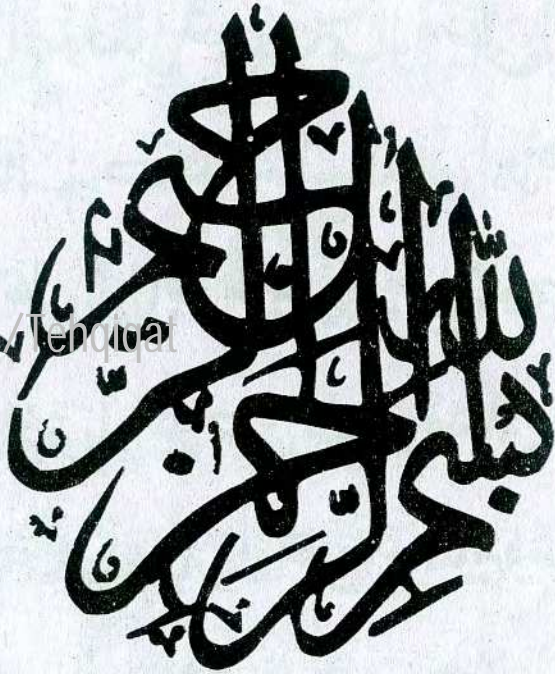 بسم الله الرحمن الرحيم
/Tehqiqat